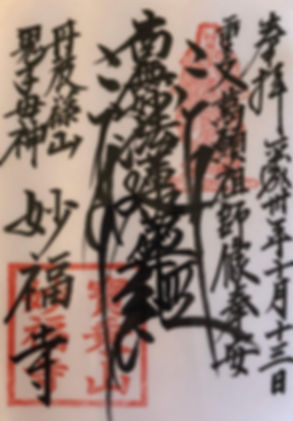 奉拝 平成卅年十月十三日
願祖師像奉安
南無妙法蓮華経
丹波篠山
鬼子母神
妙福寺